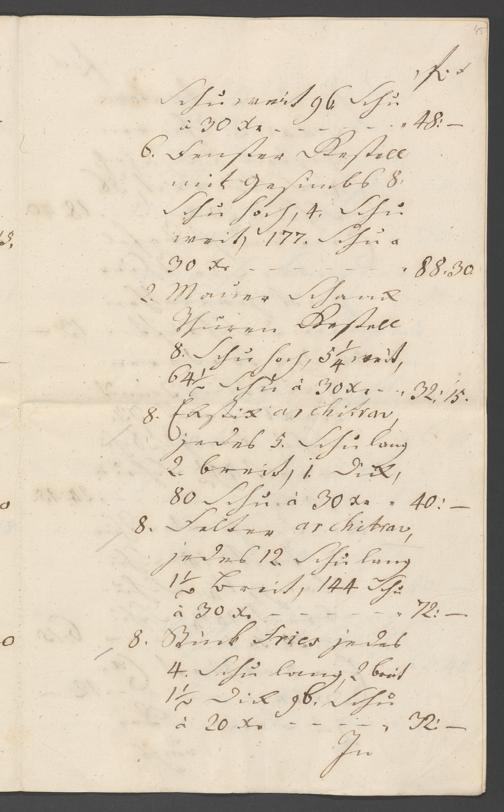 f: x
Schu, weit 96 Schu
à 30 xr. - - - - - „ 48: —
6. Fenster Gestell
mit Gesimbs 8.
Schu hoch, 4. Schu
weit, 177. Schu a
30 xr. - - - - - „ 88: 30.
2. Mauer Schank
Thuren Gestell
8. Schu hoch, 5 1/4 weit,
64 1/2 Schu à 30 xr. - „ 32: 15.
8. architrav,
jedes 5. Schu lang
2. breit, 1. Dick,
80 Schu à 30 xr „ 40: —
8. Felter architrav,
jedes 12 Schu lang
1 1/2 Breit, 144 Schu
à 30 xr. - - - - - „ 72: —
8. Stück Fries jedes
4. Schu lang, 2 breit
1 1/2 Dick 96. Schu
à 20 xr. - - - - - „ 32: —
In